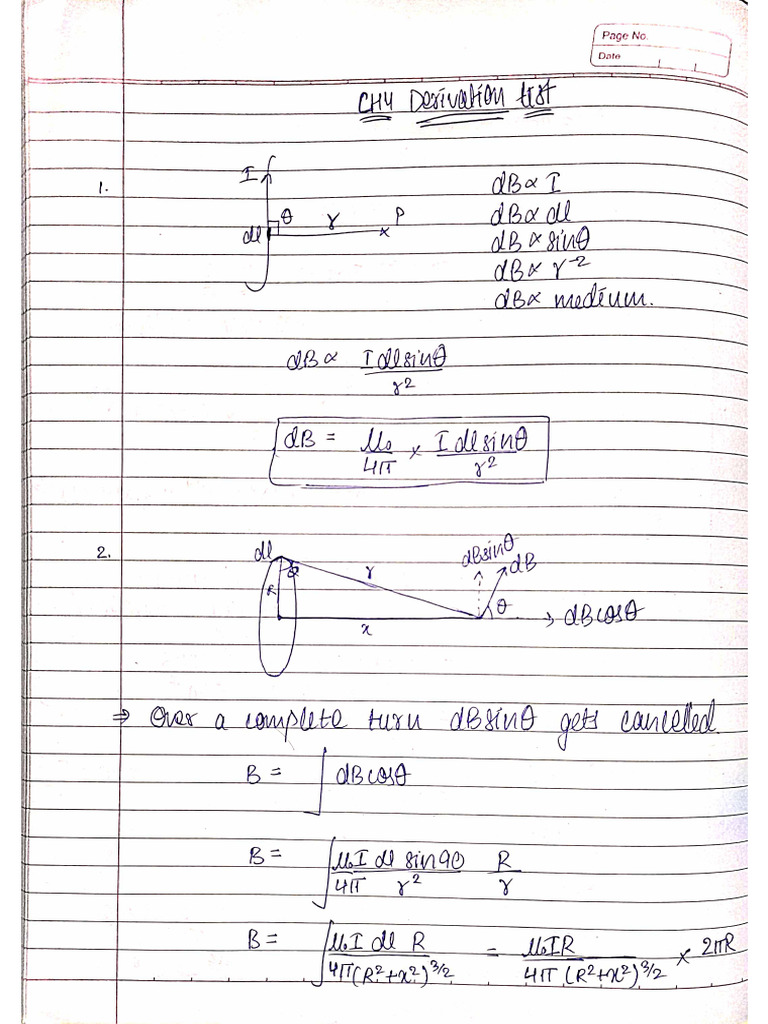 Page No.
Date
CH4 Derivation test
1.
I
θ
r
P
dl
dB ∝ I
dB ∝ dl
dB ∝ sinθ
dB ∝ r⁻²
dB ∝ medium.
dB ∝ I dl sinθ / r²
dB = μ₀/4π × I dl sinθ / r²
2.
dl
θ
R
r
x
dBsinθ
dB
θ
dBcosθ
⇒ Over a complete turn dBsinθ gets cancelled.
B = ∫ dBcosθ
B = ∫ μ₀I dl sin90 / 4π r² R/r
B = ∫ μ₀I dl R / 4π(R²+x²)^3/2 = μ₀IR / 4π (R²+x²)^3/2 × 2πR